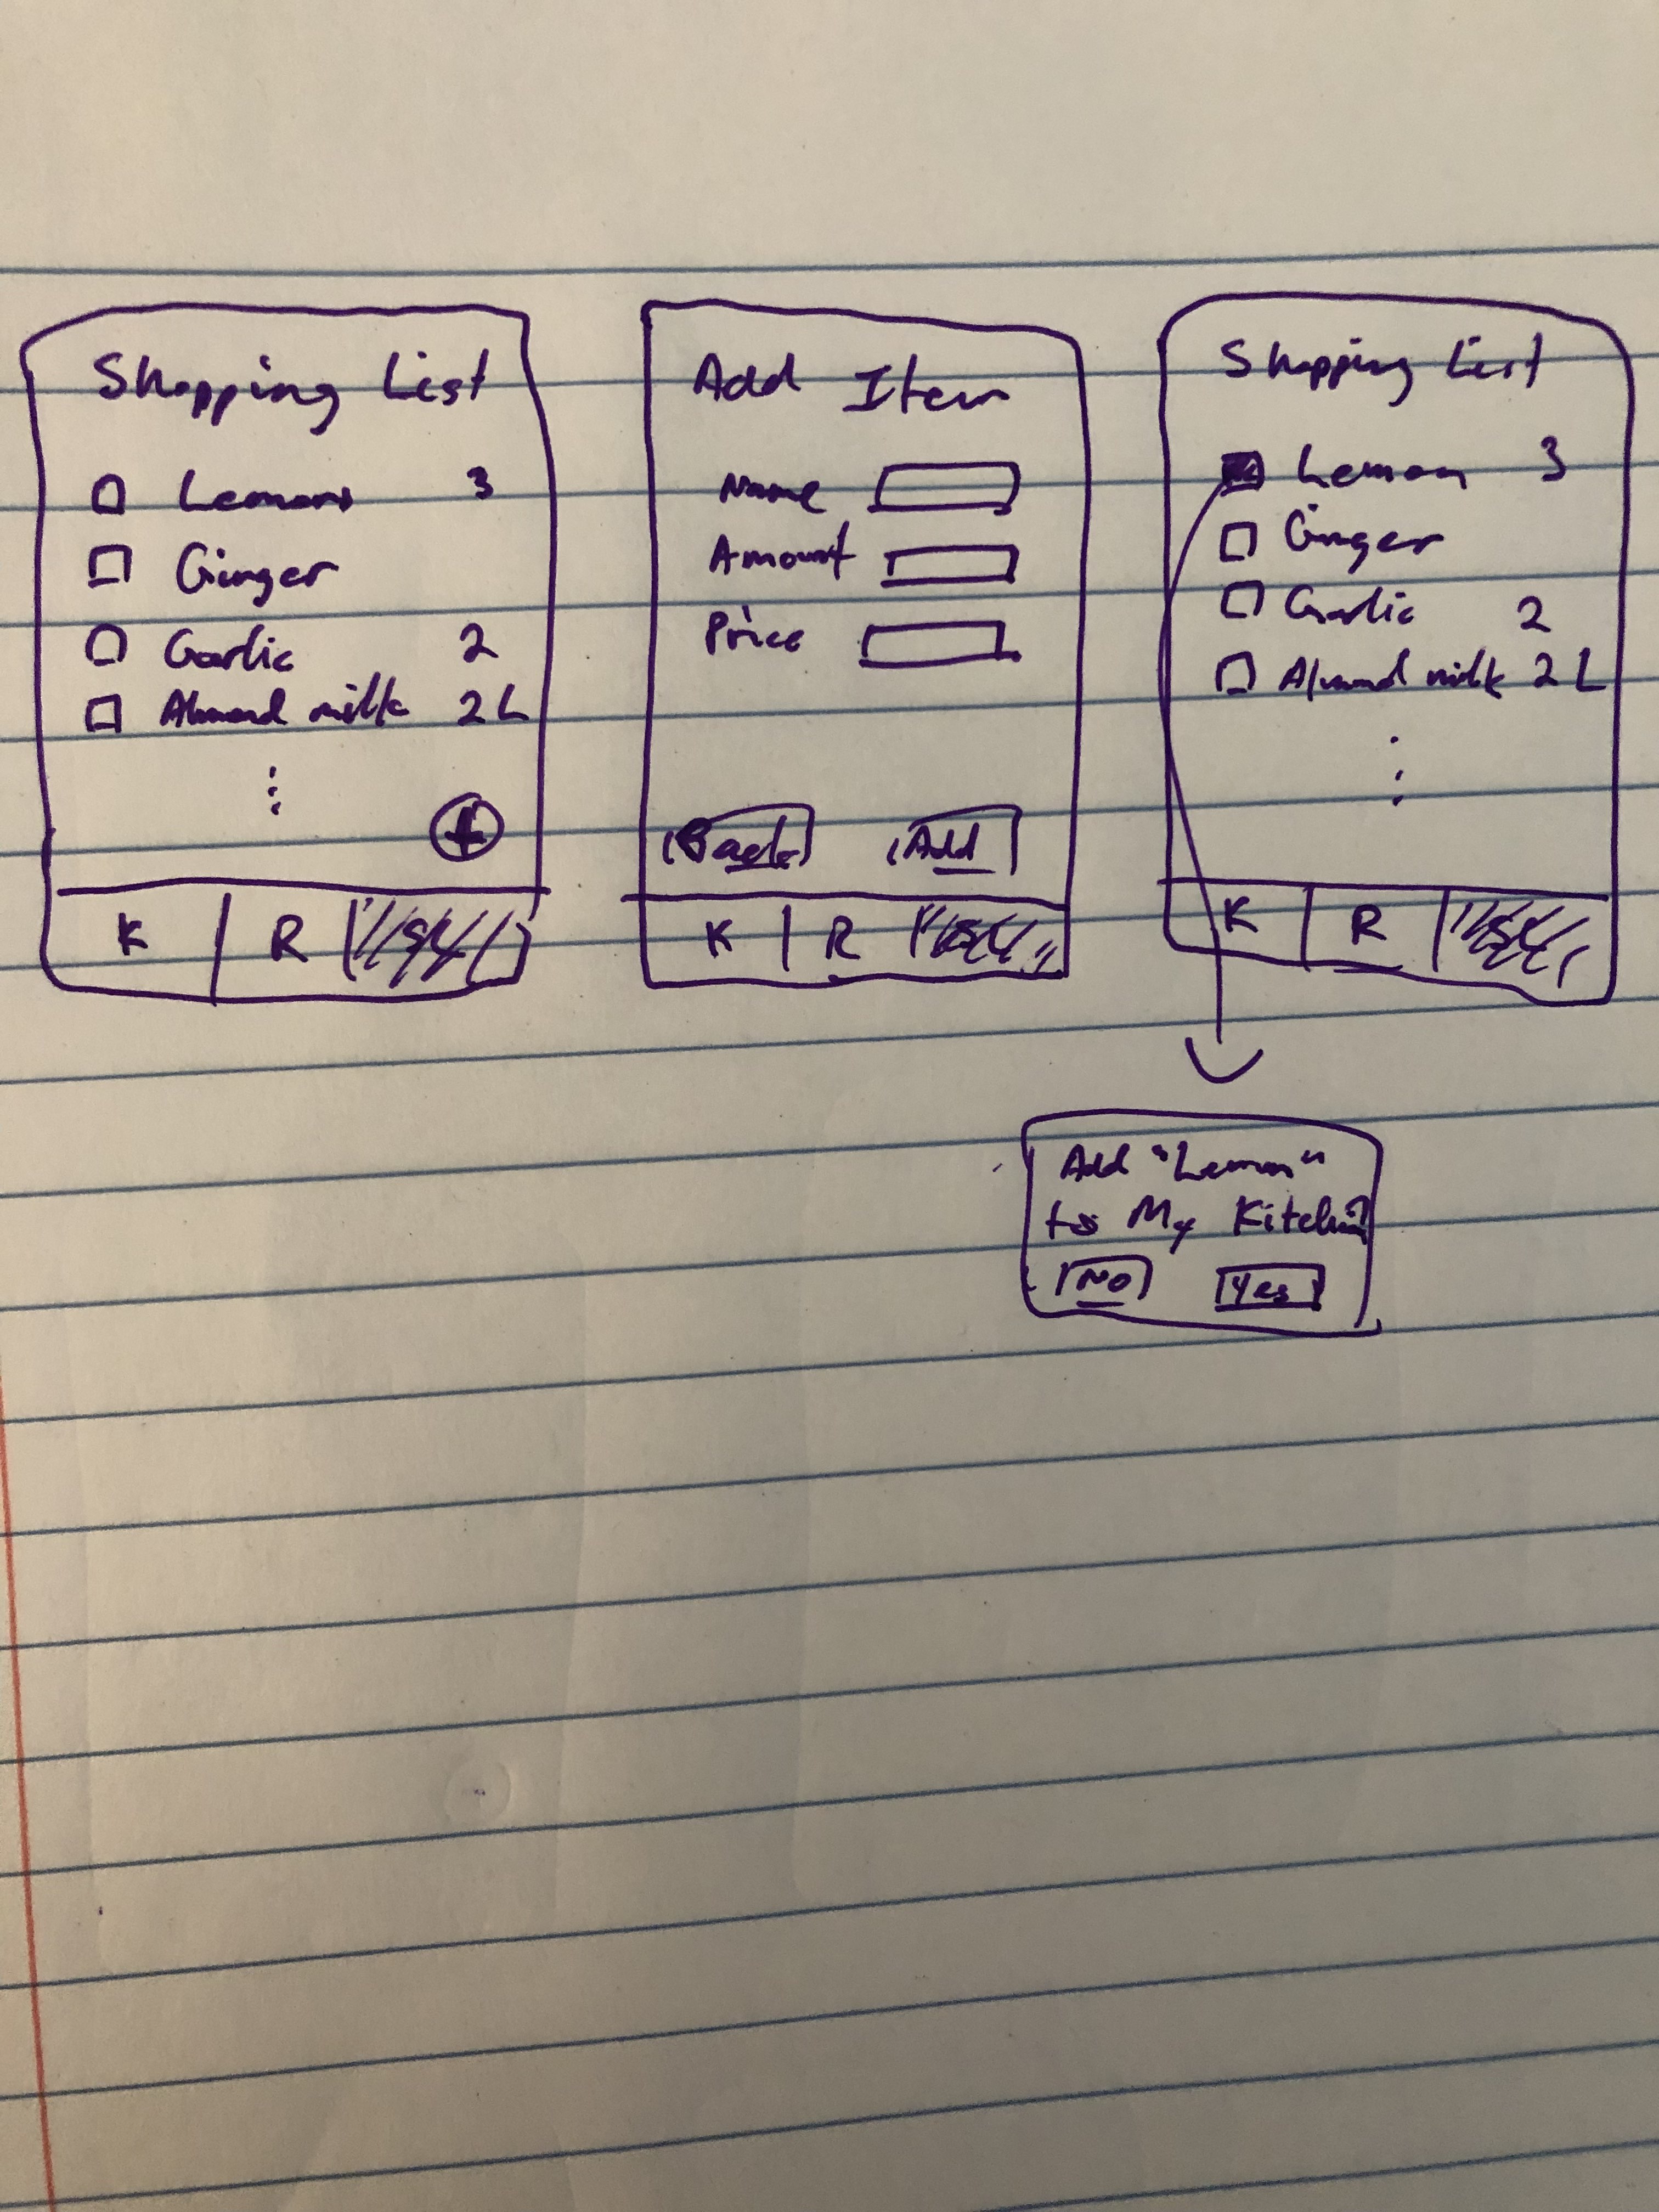 Shopping List
Lemons 3
Ginger
Garlic 2
Almond milk 2 L
+
K R S
Add Item
Name
Amount
Price
Back Add
K R S
Shopping List
Lemon 3
Ginger
Garlic 2
Almond milk 2 L
K R S
Add "Lemon"
to My Kitchen?
No Yes